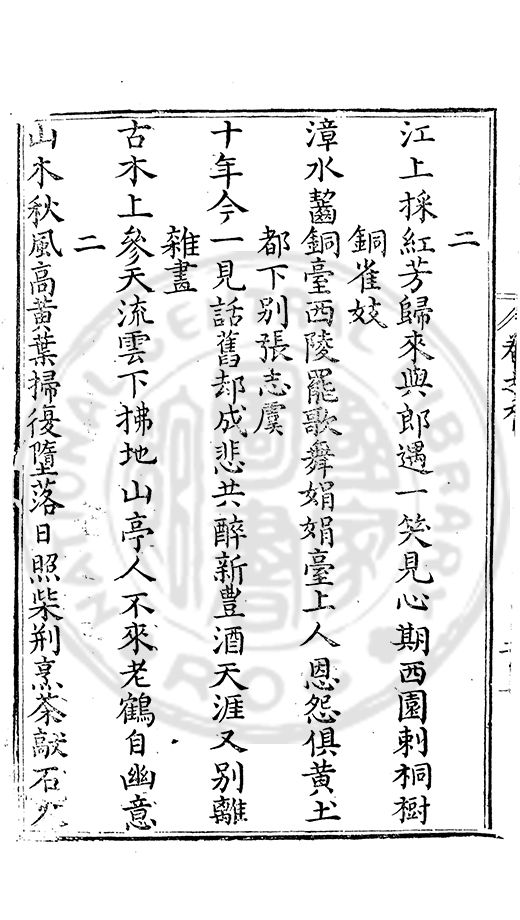 二
江上採紅芳歸來與郎遇一笑見心期西園刺桐樹
銅雀妓
漳水齧銅臺西陵罷歌舞娟娟臺上人恩怨俱黄土
都下别張志虞
十年今一見話舊却成悲共醉新豐酒天涯又别離
雜畫
古木上參天流雲下拂地山亭人不來老鶴自幽意
二
山木秋風高黃葉掃復墮落日照柴荆烹茶敲石火